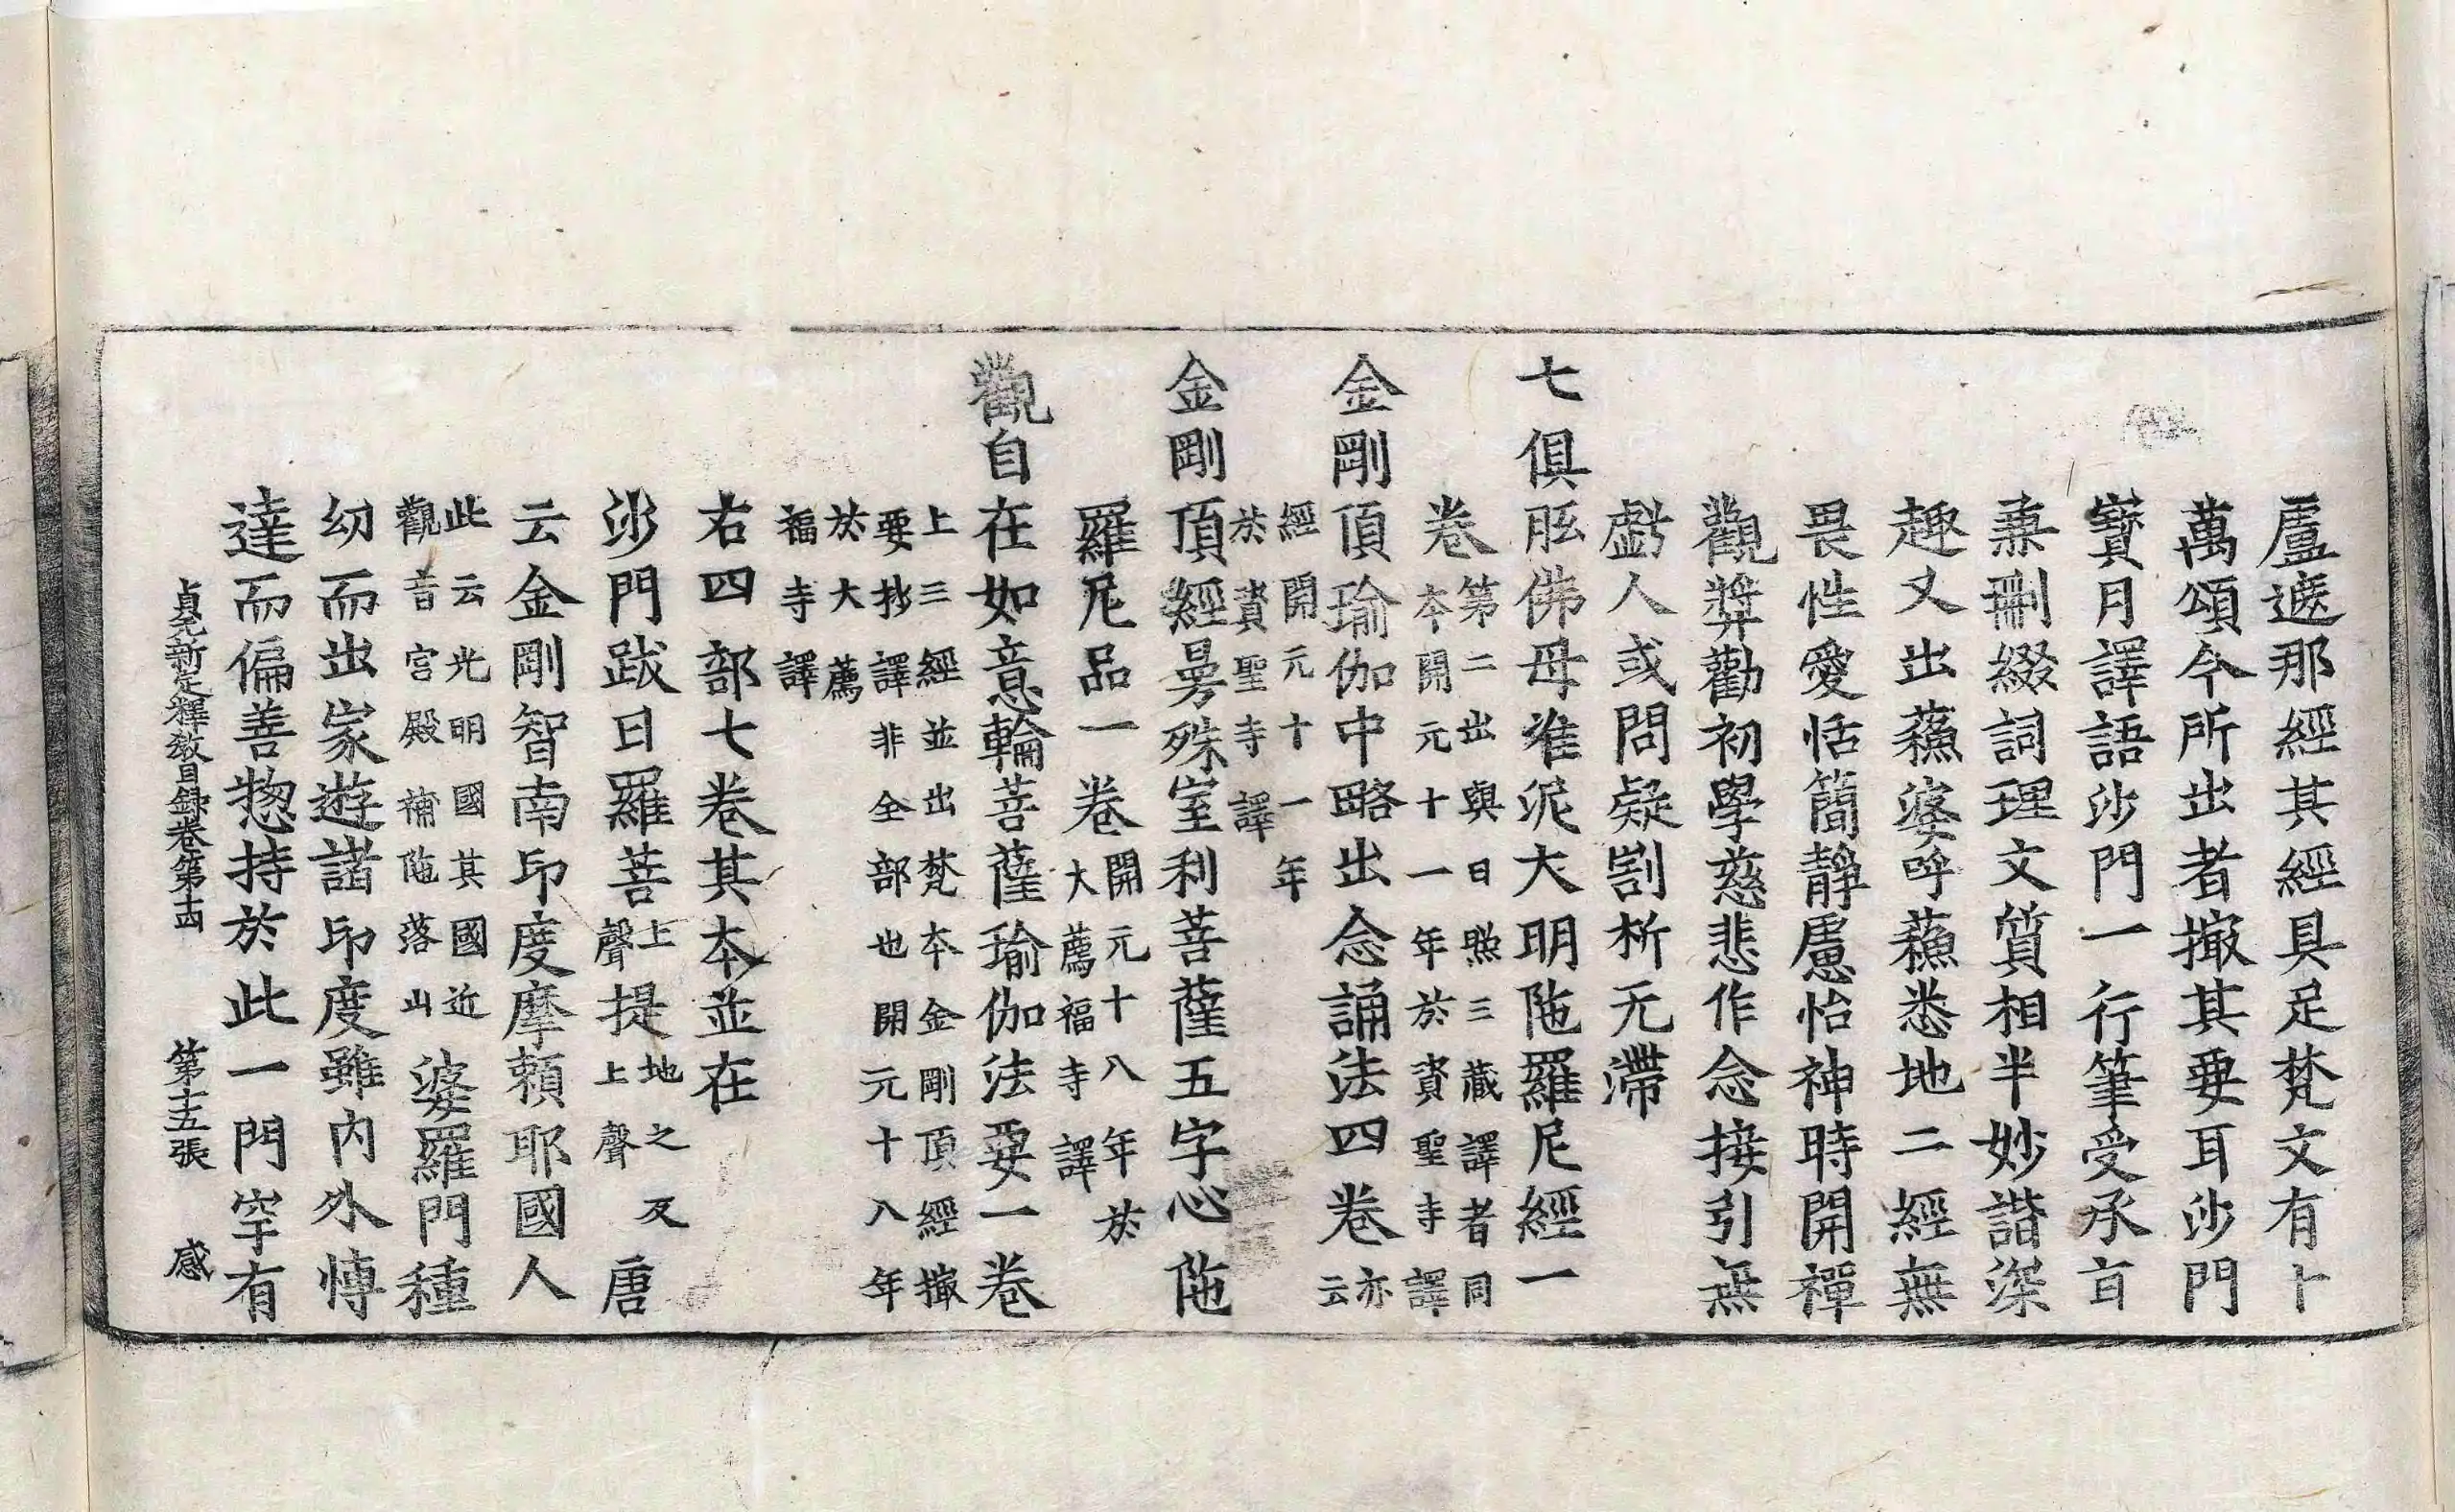 盧遮那經其經具足梵文有十
萬頌今所出者撮其要耳沙門
寶月譯語沙門一行筆受承旨
兼刪綴詞理文質相半妙諧深
趣又出蘇婆呼蘇悉地二經無
畏性愛恬簡靜慮怡神時開禪
觀奬勸初學慈悲作念接引無
虧人或問疑割析无滯
七俱胝佛母准泥大明陁羅尼經一
卷第二出與日照三藏譯者同本開元十一年於資聖寺譯
金剛頂瑜伽中略出念誦法四卷亦云
經開元十一年於資聖寺譯
金剛頂經曼殊室利菩薩五字心陁
羅尼品一卷開元十八年於大薦福寺譯
觀自在如意輪菩薩瑜伽法要一卷
上三經並出梵本金剛頂經撮要抄譯非全部也開元十八年
於大薦福寺譯
右四部七卷其本並在
沙門跋日羅菩上聲提地之反上聲唐
云金剛智南印度摩賴耶國人
此云光明國其國近觀音宮殿補陁落山婆羅門種
幼而出家遊諸印度雖內外博
達而偏善惣持於此一門罕有
貞元新定釋教目録卷第十四 第十五張 感